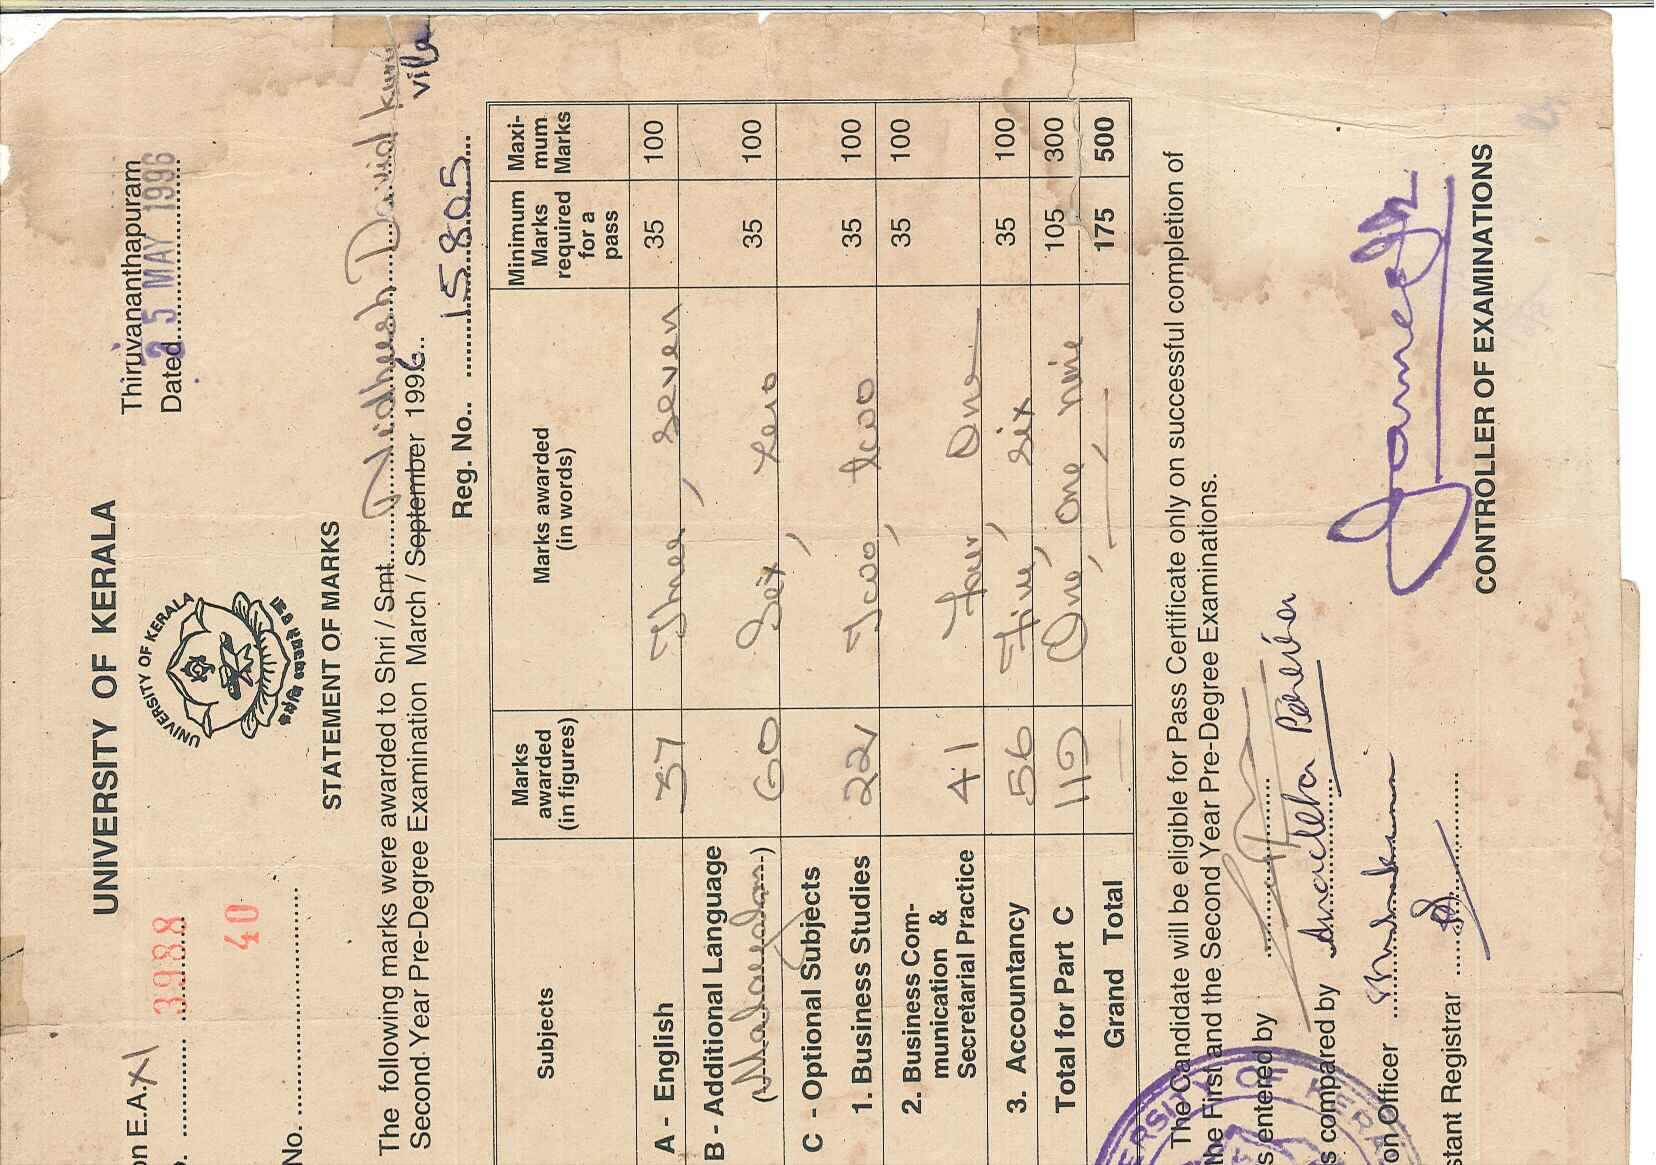 UNIVERSITY OF KERALA
on E.A.XI
3988
40
No.
Thiruvananthapuram
Dated 25 MAY 1996
UNIVERSITY OF KERALA
कर्मणि व्यज्यते प्रज्ञा
STATEMENT OF MARKS
The following marks were awarded to Shri / Smt. Nidheesh David Kuru
vila
Second Year Pre-Degree Examination March / September 1996.
Reg. No. 15805
Subjects Marks awarded (in figures) Marks awarded (in words) Minimum Marks required for a pass Maxi-mum Marks
A - English 37 Three, Seven 35 100
B - Additional Language 60 Six, Zero 35 100
(Malayalam)
C - Optional Subjects
1. Business Studies 22 Two, two 35 100
2. Business Com- 35 100
munication &
Secretarial Practice 41 Four, One
3. Accountancy 56 Five, Six 35 100
Total for Part C 119 One, One, nine 105 300
Grand Total 175 500
The Candidate will be eligible for Pass Certificate only on successful completion of
the First and the Second Year Pre-Degree Examinations.
s entered by
s compared by
on Officer
stant Registrar
CONTROLLER OF EXAMINATIONS